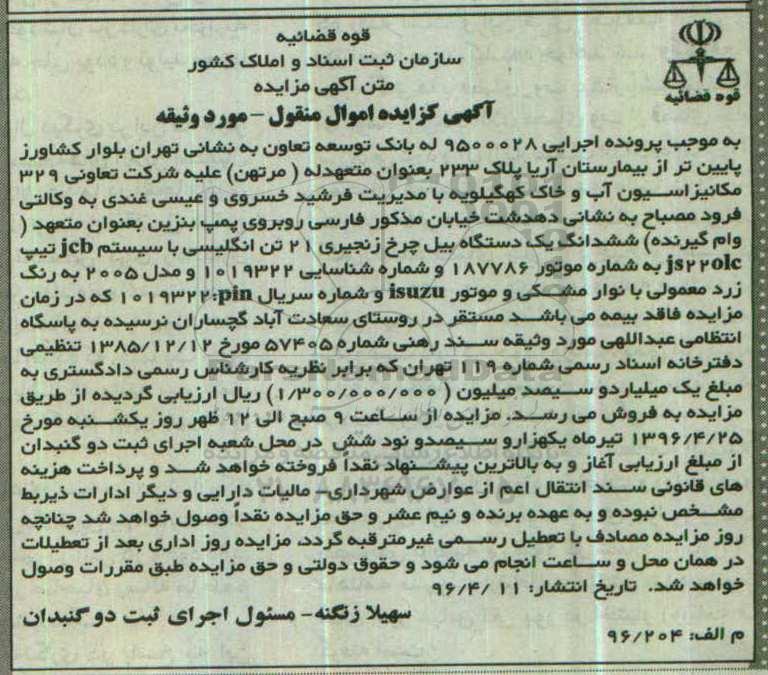 قوه قضائیه
سازمان ثبت اسناد و املاک کشور
متن آگهی مزایده
قوه قضائیه
آگهی گزایده اموال منقول - مورد وثیقه
به موجب پرونده اجرایی ۹۵۰۰۰۲۸ له بانک توسعه تعاون به نشانی تهران بلوار کشاورز
پایین تر از بیمارستان آریا پلاک ۲۳۳ بعنوان متعهدله ( مرتهن) علیه شرکت تعاونی ۳۲۹
مکانیزاسیون آب و خاک کهگیلویه با مدیریت فرشید خسروی و عیسی غندی به وکالتی
فرود مصباح به نشانی دهدشت خیابان مذکور فارسی روبروی پمپ بنزین بعنوان متعهد (
وام گیرنده) ششدانگ یک دستگاه بیل چرخ زنجیری ۲۱ تن انگلیسی با سیستم jcb تیپ
js۲۲olc به شماره موتور ۱۸۷۷۸۶ و شماره شناسایی ۱۰۱۹۳۲۲ و مدل ۲۰۰۵ به رنگ
زرد معمولی با نوار مشکی و موتور isuzu و شماره سریال pin:۱۰۱۹۳۲۲ که در زمان
مزایده فاقد بیمه می باشد مستقر در روستای سعادت آباد گچساران نرسیده به پاسگاه
انتظامی عبداللهی مورد وثیقه سند رهنی شماره ۵۷۴۰۵ مورخ ۱۳۸۵/۱۲/۱۲ تنظیمی
دفترخانه اسناد رسمی شماره ۱۱۹ تهران که برابر نظریه کارشناس رسمی دادگستری به
مبلغ یک میلیاردو سیصد میلیون ( ۱/۳۰۰/۰۰۰/۰۰۰) ریال ارزیابی گردیده از طریق
مزایده به فروش می رسد. مزایده از ساعت ۹ صبح الی ۱۲ ظهر روز یکشنبه مورخ
۱۳۹۶/۴/۲۵ تیرماه یکهزارو سیصدو نود شش در محل شعبه اجرای ثبت دو گنبدان
از مبلغ ارزیابی آغاز و به بالاترین پیشنهاد نقداً فروخته خواهد شد و پرداخت هزینه
های قانونی سند انتقال اعم از عوارض شهرداری- مالیات دارایی و دیگر ادارات ذیربط
مشخص نبوده و به عهده برنده و نیم عشر و حق مزایده نقداً وصول خواهد شد چنانچه
روز مزایده مصادف با تعطیل رسمی غیرمترقبه گردد، مزایده روز اداری بعد از تعطیلات
در همان محل و ساعت انجام می شود و حقوق دولتی و حق مزایده طبق مقررات وصول
خواهد شد. تاریخ انتشار: ۹۶/۴/۱۱
سهیلا زنگنه- مسئول اجرای ثبت دو گنبدان
م الف: ۹۶/۲۰۴